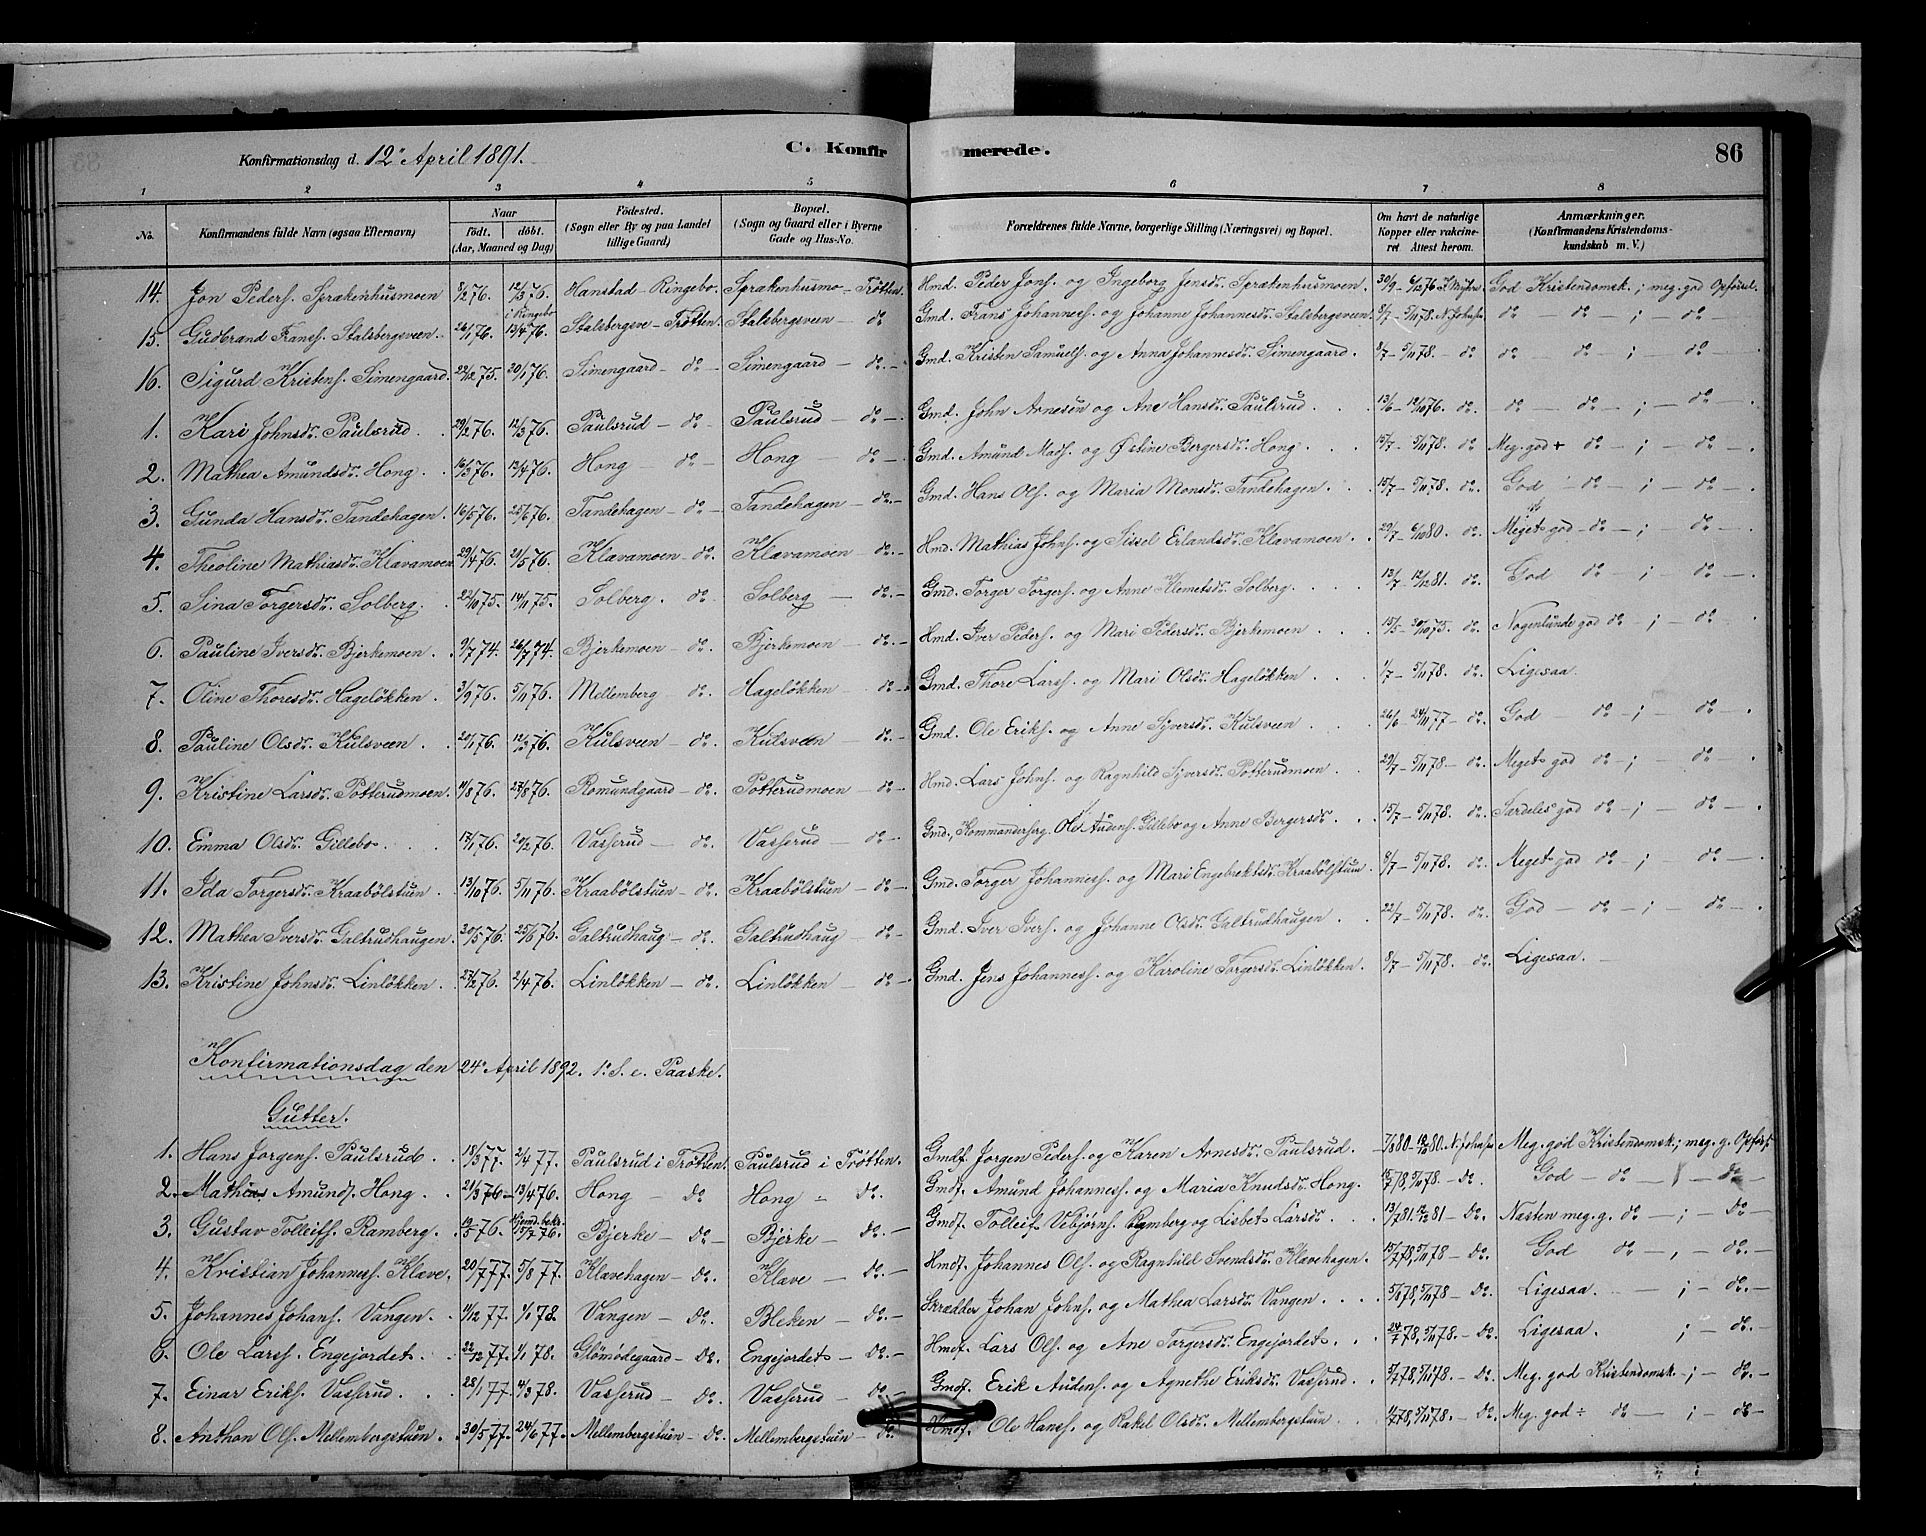 Konfirmationsdag d. 12. April 1891. C. Konfirmerede. 86
1 2 3 4 5 6 7 8
No. Konfirmandens fulde Navn (ogsaa Efternavn) Naar Født. døbt. (Aar, Maaned og Dag) Fødested. (Sogn eller By og paa Landet tillige Gaard) Bopæl. (Sogn og Gaard eller i Byerne Gade og Hus-No. Forældrenes fulde Navne, borgerlige Stilling (Næringsvei) og Bopæl. Om havt de naturlige Kopper eller vakcineret Attest herom. Anmærkninger. (Konfirmandens Kristendomskundskab m. V.)
14. Jon Peders. Sprækenhusmoen 8/2 76. 12/3 76. i Ringebo Hanstad - Ringebo. Sprækenhusmo - Trötten. Hmd. Peder Jons. og Ingeborg Jensdr. Sprækenhusmoen. 30/9 - 6/12 76 God Kristendomsk.; meg. god Opförsel.
15. Gudbrand Franss. Stalsbergsveen. 26/1 76. 13/4 76. Stalsbergsve - Trötten. Stalsbergsveen - do Gmd. Frans Johanness. og Johanne Johannesdr. Stalsbergsveen. 8/7 - 5/11 78. N. Johnsen do - do - ; - do -
16. Sigurd Kristens. Simengaard. 22/12 75. 20/1 76. Simengaard - do - Simengaard - do. - Gmd. Kristen Samuels. og Anna Johannesdr. Simengaard. 8/7 - 5/11 78. - do do do - ; do
1. Kari Johnsdr. Paulsrud. 29/2 76. 12/3 76. Paulsrud - do - Paulsrud - do - Gmd. John Arnesen og Ane Hansdr. Paulsrud. 13/6 - 12/10 76. do. do - do - ; - do -
2. Mathea Amundsdr. Hong. 16/3 76. 13/4 76. Hong - do - Hong - do - Gmd. Amund Mads. og Östine Bergersdr. Hong. 15/7 - 5/11 78. do Meg. god + do - ; - do -
3. Gunda Hansdr. Tandehagen. 16/5 76. 25/6 76. Tandehagen - do - Tandehagen - do - Gmd. Hans Ols. og Maria Monsdr. Tandehagen. 15/7 - 5/11 78. do. God - do - ; - do -
4. Theoline Mathiasdr. Klavamoen 29/4 76. 21/5 76. Klavamoen - do. Klavamoen - do. - Hmd. Mathias Johns. og Sissel Erlandsdr. Klavamoen. 29/7 - 6/10 80. do. Meget god - do - ; - do -
5. Sina Torgersdr. Solberg. 22/10 75. 14/11 75. Solberg. do. Solberg - do. - Gmd. Torger Torgers. og Anne Klemetsdr. Solberg. 13/7 - 12/12 81. do. God do - ; - do -
6. Pauline Iversdr. Bjerkemoen. 9/7 74. 26/7 74. Bjerkemoen - do. Bjerkemoen - do - Hmd. Iver Peders. og Mari Pedersdr. Bjerkemoen 15/5 - 30/10 75. do. Nogenlunde god do - ; - do -
7. Oline Thoresdr. Hagelökken. 3/9 76. 5/11 76. Mellemberg - do. Hagelökken - do - Gmd. Thore Larss. og Mari Olsdr. Hagelökken 1/7 - 5/11 78. do. Ligesaa.
8. Pauline Olsdr. Kulsveen. 20/1 76. 12/3 76. Kulsveen - do. Kulsveen - do. - Gmd. Ole Eriks. og Anne Syversdr. Kulsveen 26/6 - 24/11 77 - do. God - do - ; - do -
9. Kristine Larsdr. Potterudmoen. 4/8 76. 27/8 76. Romundgaard - do. Potterudmoen - do - Hmd. Lars Johns. og Ragnhild Syversdr. Potterudmoen 29/7 - 5/11 78 - do. Meget god do - ; - do -
10. Emma Olsdr. Gillebo. 17/1 76. 20/2 76. Vasserud - do. Vasserud - do - Gmd., Kommanderserg. Ole Audens. Gillebo og Anne Bergersdr. 15/7 - 5/11 78. do. Særdeles god do - ; - do -
11. Ida Torgersdr. Kraabölstuen. 13/10 76. 5/11 76. Kraabölstuen - do. Kraabölstuen - do - Gmd. Torger Johanness. og Mari Engebrektsdr. Kraabölstuen. 8/7 - 5/11 78. do. Meget god do - ; do -
12. Mathea Iversdr. Galtrudhaugen. 30/5 76. 25/6 76. Galtrudhaug - do. Galtrudhaug - do - Gmd. Iver Ivers. og Johanne Olsdr. Galtrudhaugen. 22/7 - 5/11 78. do. God - do - ; - do -
13. Kristine Johnsdr. Linlökken. 27/2 76. 2/4 76. Linlökken - do. Linlökken - do - Gmd. Jens Johanness. og Karoline Torgersdr. Linlökken. 8/7 - 5/11 78. do. Ligesaa. -
Konfirmationsdag den 24. April 1892. 1. S. e. Paaske.
Gutter.
1. Hans Jorgens. Paulsrud. 18/3 77. 2/4 77. Paulsrud i Trötten. Paulsrud i Trötten. Gmdf. Jorgen Peders. og Karen Arnesdr. Paulsrud. 7/8 80. 12/10 80. N. Johnsen Meg. god Kristendomsk.; meg. g. Opförs.
2. Mathias Amunds. Hong. 21/3 76 - 13/4 76. Hong - Do Hong - Do. Gmdf. Amund Johanness. og Maria Knudsdr. Hong. 15/7 78, 5/11 78. - Do. God - Do - ; - Do -
3. Gustav Tolleifs. Ramberg. 19/5 76. Hjemd. bekr. 15/7 76. Bjerke - Do - Bjerke - Do. - Gmdf. Tolleif Vebjörns. Ramberg og Lisbet Larsdr. 13/7 81. 12/12 81 - Do. Næsten meg. g. do - ; - Do -
4. Kristian Johanness. Klave. 20/7 77. 5/8 77. Klavehagen - Do. Klave - Do. - Hmdf. Johannes Ols. og Ragnhild Svendsdr. Klavehagen. 15/7 78, 5/11 78 - Do. God Do - , - do. -
5. Johannes Johans. Vangen. 11/12 77. 1/1 78. Vangen - Do. Bleken - Do. Skrædder Johan Johns. og Mathea Larsdr. Vangen. 5/6 78, 5/11 78 - Do. Ligesaa. ; - Do. -
6. Ole Larss. Engejordet. 22/12 77. 1/1 78. Glömödegaard - Do. Engejordet - Do. - Hmdf. Lars Ols. og Ane Torgersdr. Engejordet. 24/7 78, 5/11 78. - Do. Ligesaa. ; - do. -
7. Einar Eriks. Vasserud. 28/1 77. 4/3 78. Vasserud - Do. Vasserud - Do - Gmdf. Erik Audens. og Agnethe Eriksdr. Vasserud. 5/7 78, 5/11 78. - Do. Meg. god Kristendomsk - ; - Do -
8. Anthon Ols. Mellembergstuen. 30/5 77. 24/6 77. Mellembergstuen - Do. Mellembergstuen - Do. Hmdf. Ole Hanss. og Rakel Olsdr. Mellembergstuen 1/7 78, 5/11 78. - Do. Meg. god ÷ do - ; - do -